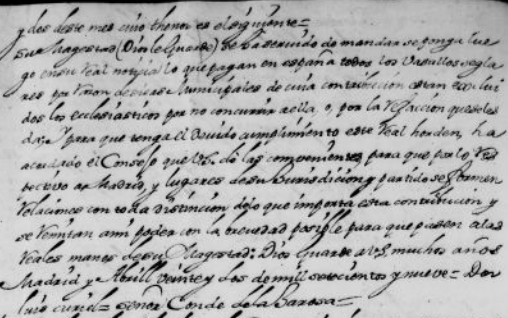 y dos deste mes cuio thenor es el siguiente=
Su Magestad (Dios le Guarde) se ha servido de mandar se ponga lue
go en su Real notizia lo que pagan en españa todos los Vasallos segla
res por razon de cisas Municipales de cuia contribucion estan exclui
dos los ecclesiasticos por no concurrir a ella, o, por la Refaccion que seles
da; Y para que tenga el devido cumplimiento este Real horden, ha
acordado el Consejo que VS. dè las combenientes para que por lo Res
pectivo a Madrid, y lugares de su Jurisdicion y partido se formen
Relaciones con toda distincion de lo que importa esta contribucion y
se Remitan a mi poder con la brevedad posible para que pasen a las
Reales manos de su Magestad; Dios Guarde a VS. muchos años
Madrid y Abrill veinte y dos de mil setecientos y nueve= Don
luis curiel= señor Conde de la Jarosa=